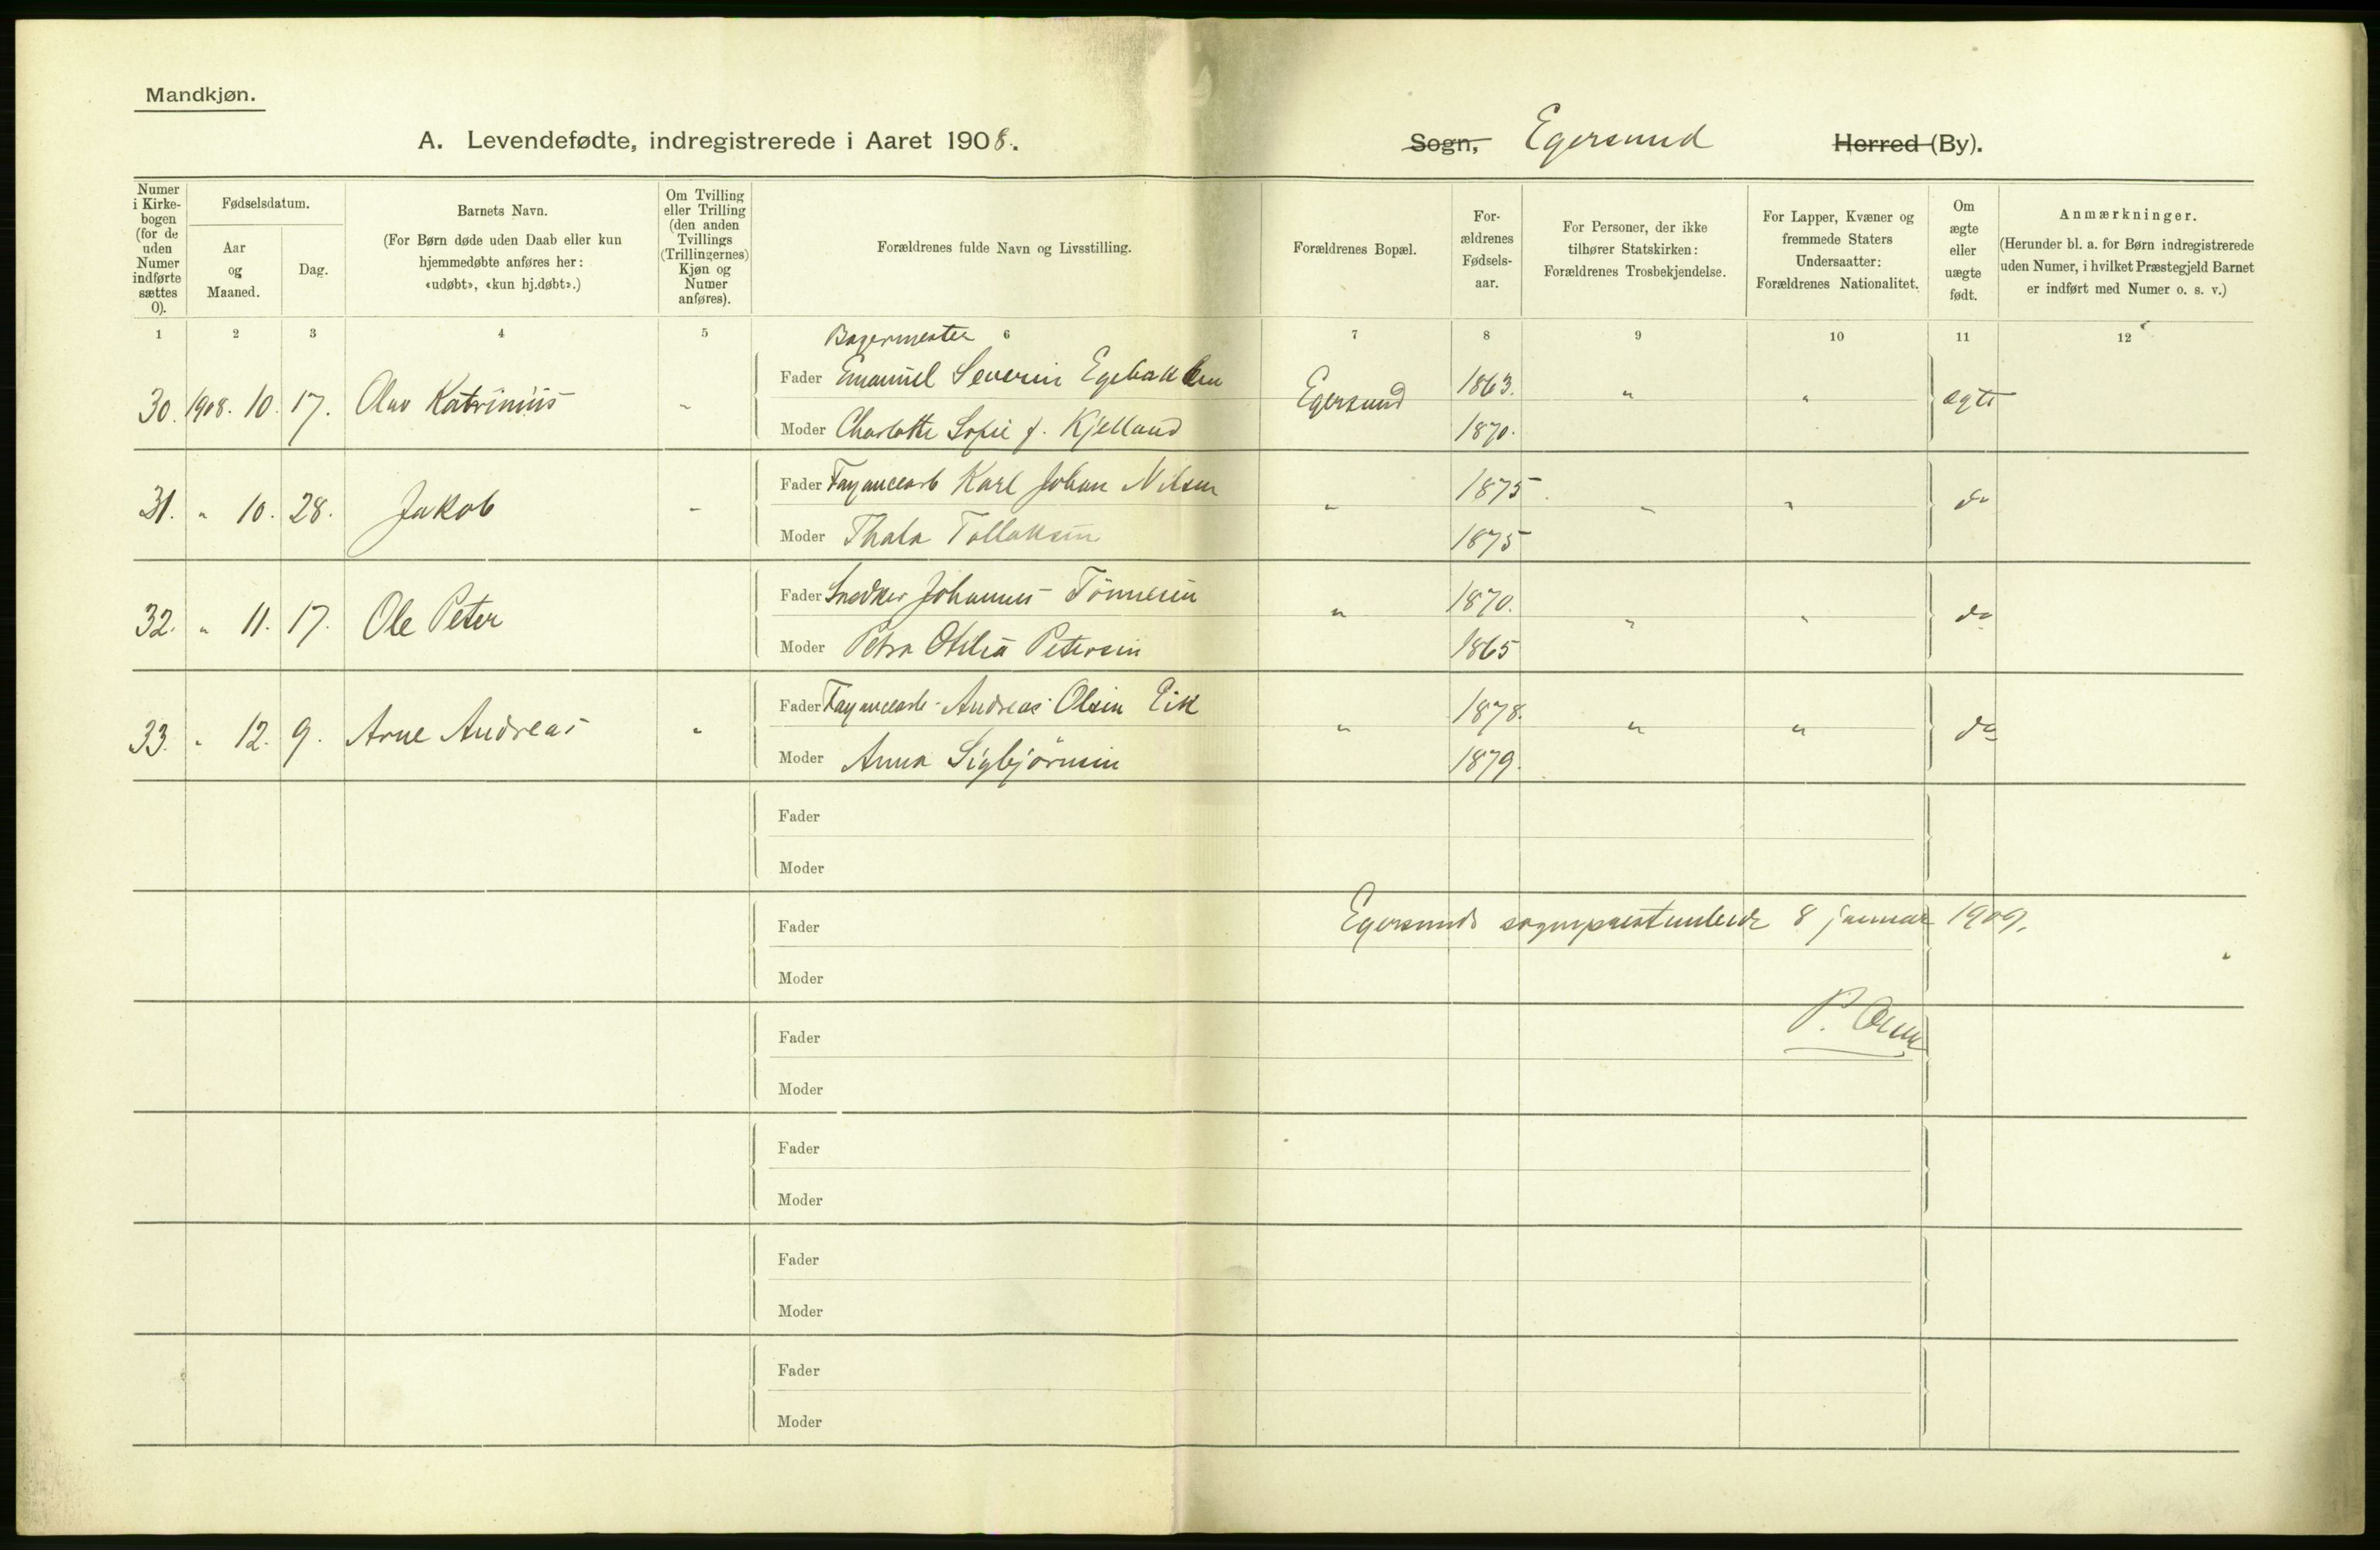 Mandkjøn.
A. Levendefødte, indregistrerede i Aaret 1908. Sogn, Egersund Herred (By).
Numer i Kirkebogen (for de uden Numer indførte sættes 0).
Fødselsdatum.
Aar og Maaned.
Dag.
Barnets Navn.
(For Børn døde uden Daab eller kun hjemmedøbte anføres her: «udøbt», «kun hj.døbt».)
Om Tvilling eller Trilling (den anden Tvillings (Trillingernes) Kjøn og Numer anføres).
Forældrenes fulde Navn og Livsstilling.
Forældrenes Bopæl.
Forældrenes Fødselsaar.
For Personer, der ikke tilhører Statskirken: Forældrenes Trosbekjendelse.
For Lapper, Kvæner og fremmede Staters Undersaatter: Forældrenes Nationalitet.
Om ægte eller uægte født.
Anmærkninger.
(Herunder bl. a. for Børn indregistrerede uden Numer, i hvilket Præstegjeld Barnet er indført med Numer o. s. v.)
1 2 3 4 5 6 7 8 9 10 11 12
Bagermester
30. 1908. 10. 17. Olav Katrinius - Fader Emanuel Severin Egebakken Egersund 1863. " " ægte
Moder Charlotte Sofie f. Kjelland 1870.
31. " 10. 28. Jakob - Fader Fayancearb Karl Johan Nilsen " 1875. " " do
Moder Thala Tollaksen 1875
32. " 11. 17. Ole Peter Fader Snedker Johannes Tönnesen " 1870. " " do
Moder Petra Otilia Petersen 1865
33. " 12. 9. Arne Andreas " Fader Fayancearb. Andreas Olsen Eik " 1878. " " do
Moder Anna Sigbjörnsen 1879.
Fader
Moder
Fader Egersunds sogneprestembede 8 januar 1909.
Moder
Fader P.
Moder
Fader
Moder
Fader
Moder
Fader
Moder